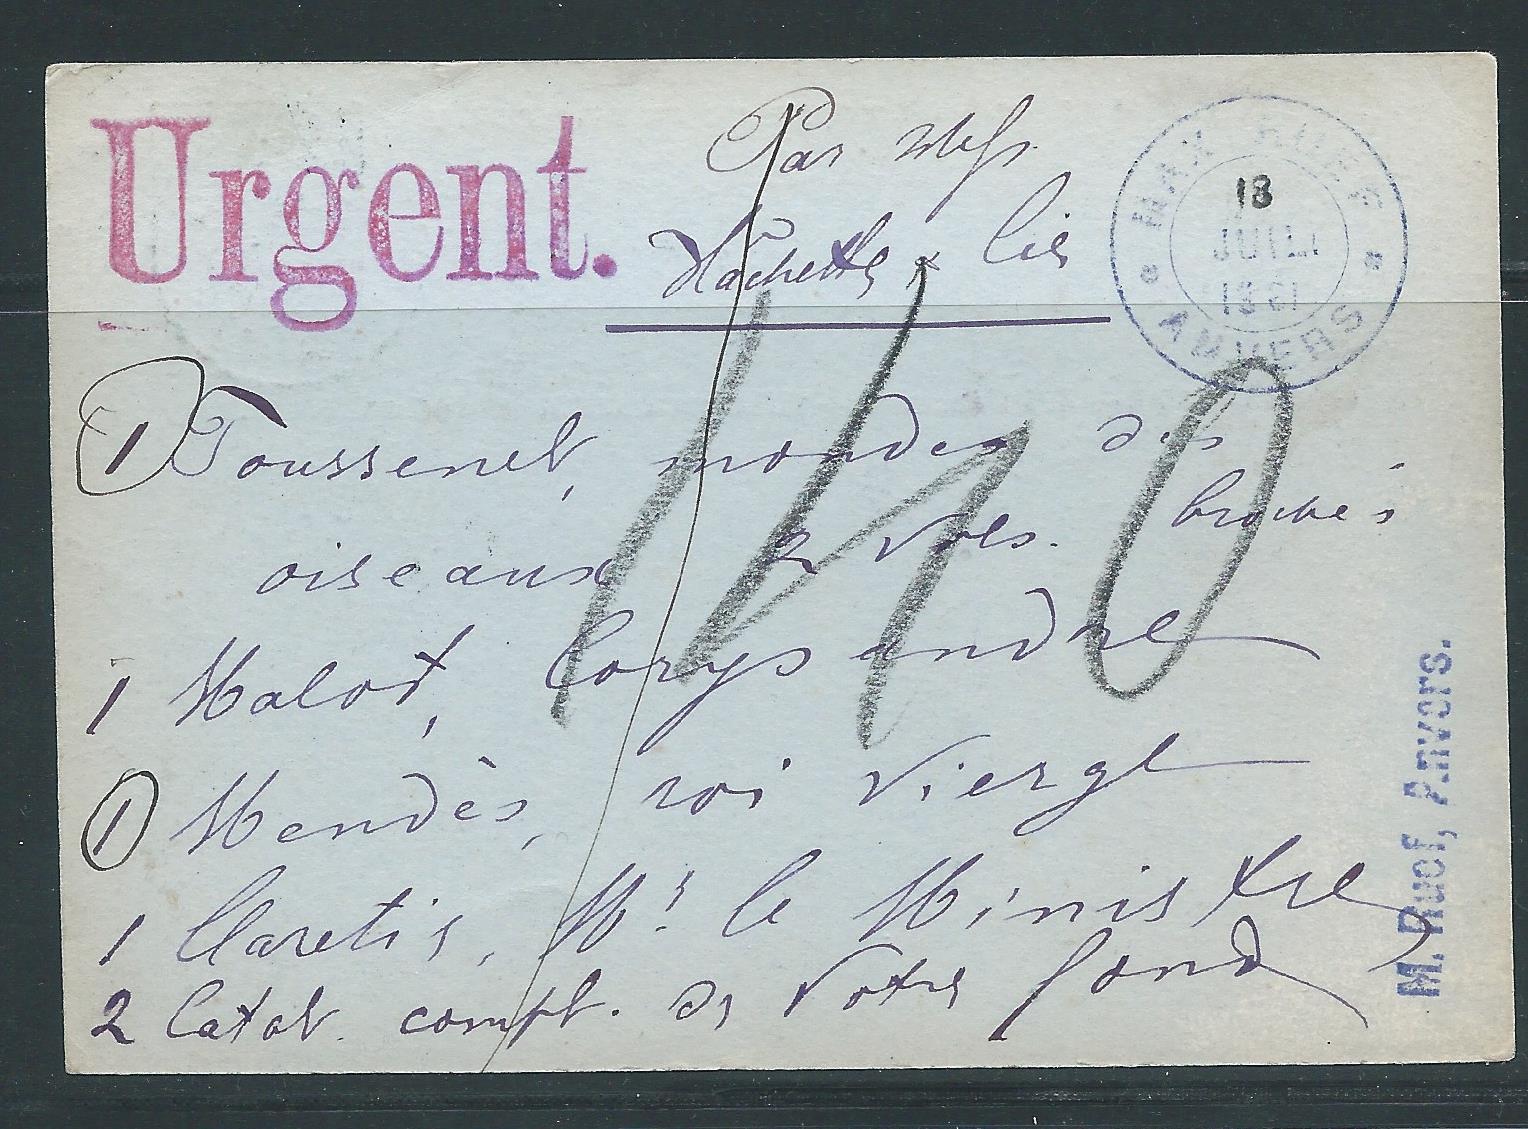 Urgent.
Par Mess.
Hachette & Cie
MAX RUEF
18
JUIL.
1881
ANVERS
1 Toussenel, mondes des
oiseaux 2 vols. brochés
1 Malot, Corysandre
1 Mendès, roi vierge
1 Claretie, Mr. le Ministre
2 Catal. compl. de votre fond
140
M. Ruef, Anvers.